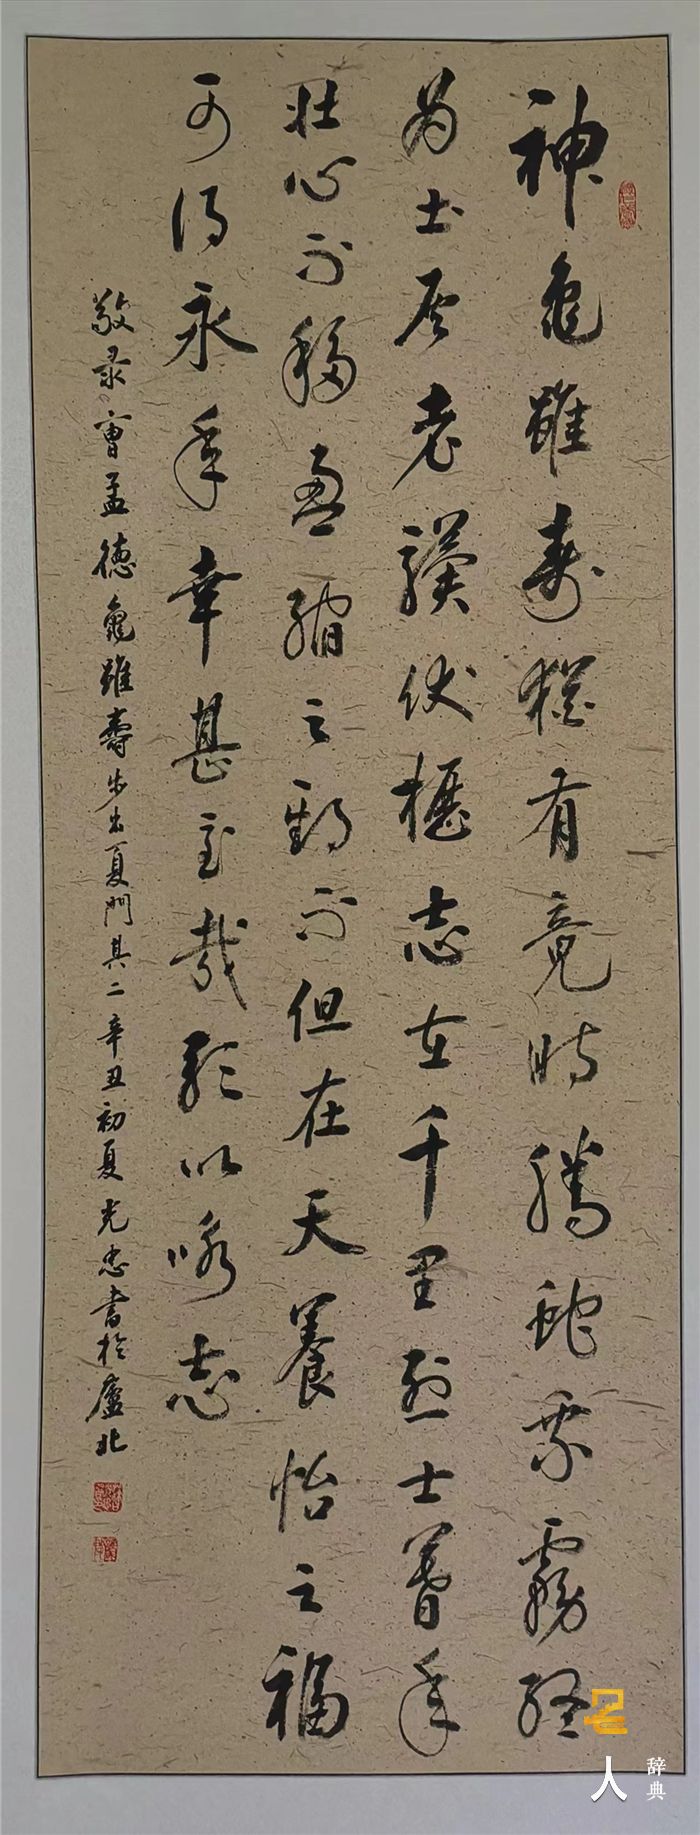 神龜雖壽猶有竟時騰蛇乘霧終
为土灰老骥伏櫪志在千里烈士暮年
壯心不移盈縮之期不但在天養怡之福
可得永年幸甚至哉歌以咏志
敬录曹孟德龜雖壽步出夏門其二辛丑初夏光忠書於廬北
名人辞典